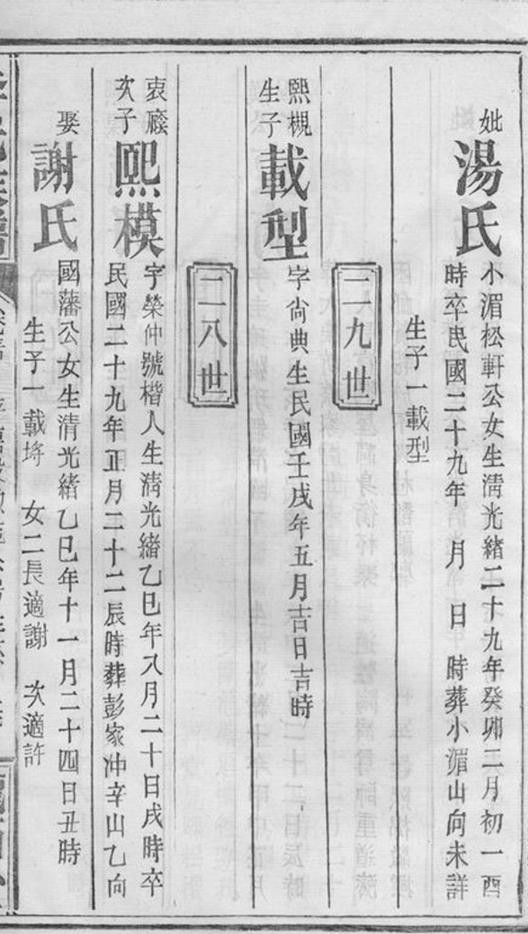 妣
湯氏
小湄松軒公女生清光緒二十九年癸卯二月初一酉
時卒民國二十九年 月 日 時葬小湄山向未詳
生子一載型
二九世
熙槻
生子
載型
字尙典生民國壬戌年五月吉日吉時
二八世
衷廢
次子
熙模
字榮仲號楷人生清光緒乙巳年八月二十日戌時卒
民國二十九年正月二十二辰時葬彭家冲辛山乙向
娶
謝氏
國藩公女生清光緒乙巳年十一月二十四日丑時
生子一載㙇 女二長適謝 次適許